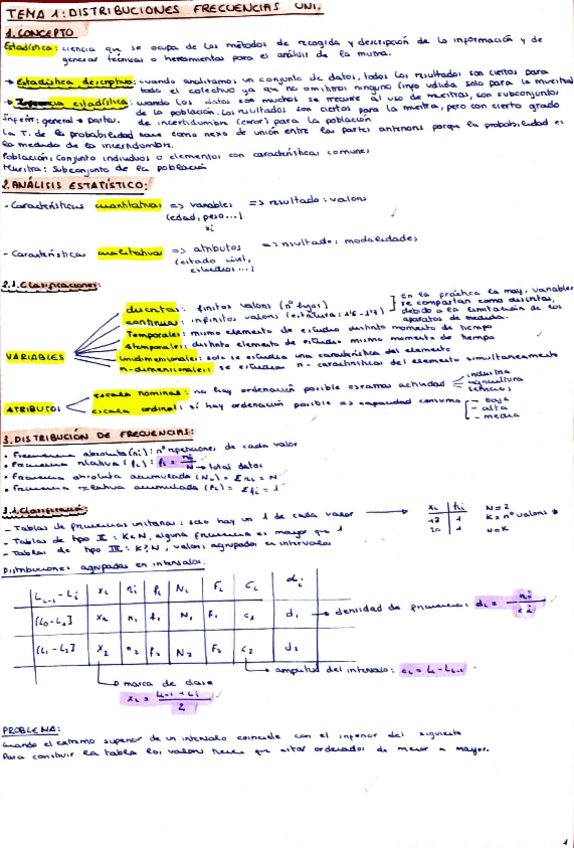 TEMA 1: DISTRIBUCIONES FRECUENCIAS UNI.
1. CONCEPTO
Estadística: ciencia que se ocupa de los métodos de recogida y descripción de la información y de
generar técnicas o herramientas para el análisis de la misma.
→ Estadística descriptiva: cuando analizamos un conjunto de datos, todos los resultados son ciertos para
todo el colectivo ya que no omitimos ninguno (info válida solo para la muestra)
→ Inferencia estadística: cuando los datos son muchos se recurre al uso de muestras, son subconjuntos
de la población. Los resultados son ciertos para la muestra, pero con cierto grado
Inferir: general → partes. de incertidumbre (error) para la población
La T. de la probabilidad nace como nexo de unión entre las partes anteriores porque la probabilidad es
la medida de la incertidumbre.
Población: conjunto individuos o elementos con características comunes
Muestra: Subconjunto de la población
2. ANÁLISIS ESTATÍSTICO:
- Características cuantitativas => variables => resultado: valores
(edad, peso...)
xi
- Características cualitativas => atributos => resultados: modalidades
(estado civil,
estudios...)
2.1. Clasificaciones:
VARIABLES
discretas: finitos valores (nº fijos)
continuas: infinitos valores (estatura: 1'6 - 1'7)
en la práctica la may. variables
se comportan como discretas,
debido a la limitación de los
aparatos de medida.
Temporales: mismo elemento de estudio distinto momento de tiempo
Atemporales: distinto elemento de estudio mismo momento de tiempo
Unidimensionales: solo se estudia una característica del elemento
n-dimensionales: se estudian n-características del elemento simultáneamente
ATRIBUTOS
escala nominal: no hay ordenación posible actividad
industria
agricultura
servicios
escala ordinal: sí hay ordenación posible => capacidad consumo
- baja
- alta
- media
3. DISTRIBUCIÓN DE FRECUENCIAS:
• Frecuencia absoluta (ni): nº repeticiones de cada valor
• Frecuencia relativa (fi): fi = ni/N → total datos
• Frecuencia absoluta acumulada (Ni) = Σni = N
• Frecuencia relativa acumulada (Fi) = Σfi = 1
3.1. Clasificación:
- Tablas de frecuencias unitarias: solo hay un 1 de cada valor →
- Tablas de tipo II: K<N, alguna frecuencia es mayor que 1
- Tablas de tipo III: valores agrupados en intervalos
N = 2
K = nº valores
N = K
Distribuciones agrupadas en intervalos.
Li-1 - Li xi ni fi Ni Fi Ci di
(L0-L1] x1 n1 f1 N1 F1 c1 d1 → densidad de frecuencia: di = ni/ci
(L1-L2] x2 n2 f2 N2 F2 c2 d2
→ amplitud del intervalo: ci = Li - Li-1
→ marca de clase
xi = Li-1 + Li / 2
PROBLEMA:
Cuando el extremo superior de un intervalo coincide con el inferior del siguiente
Para construir la tabla los valores tienen que estar ordenados de menor a mayor.
1